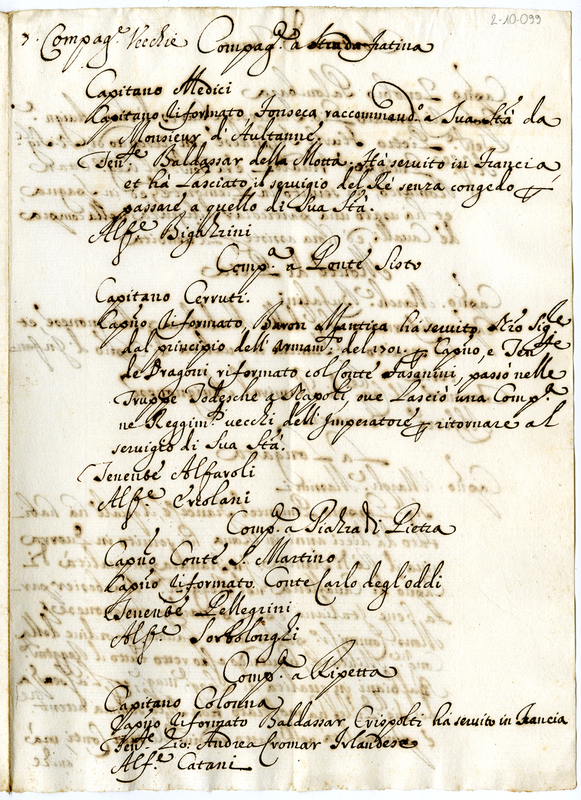 2-10-099
3. Compag.e Vecchie Compag.a a Fratina
Capitano Medici
Capitano riformato Fonseca raccommand.o a Sua Stà da
Monsieur d'Aultanne.
Ten.te Baldassar della Motta. Hà servito in Francia,
et hà Lasciato il servigio del Rè senza congedo p
passare a quello di Sua Stà.
Alf.e Bigazzini
Comp.a a Ponte Sisto
Capitano Cerruti.
Capño riformato, Baron Mantica hà servito Sig.re
dal principio dell'Armam.to del 1701. p Capño, e Ten.te
de Dragoni riformato col Conte Fasanini, passò nelle
Truppe Tedesche a Napoli, ove Lasciò una Comp.a
ne Reggim.ti vecchi dell'Imperatore p ritornare al
servigio di Sua Stà.
Tenente Alfaroli
Alf.e Ercolani
Comp.a a Piazza di Pietra
Capño Conte S. Martino
Capño riformato Conte Carlo degl'oddi
Tenente Pellegrini
Alf.e Sorbolonghi
Comp.a a Ripetta
Capitano Colonna
Capño riformato Baldassar Crispolti hà servito in Francia
Ten.te Gio. Andrea Cromar Irlandese
Alf.e Catani